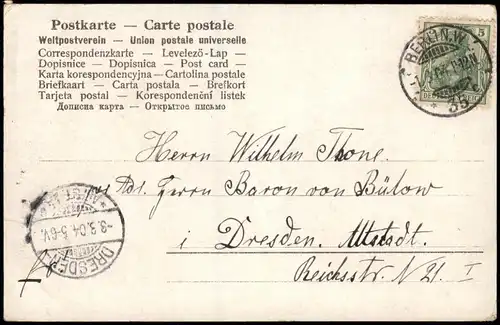 Postkarte – Carte postale
Weltpostverein – Union postale universelle
Correspondenzkarte – Levelező-Lap –
Dopisnice – Dopisnica – Post card –
Karta korespondencyjna – Cartolina postale
Briefkaart – Carta postala – Brefkort
Tarjeta postal – Korespondenční listek
Дописна карта – Открытое письмо
5
BERLIN, W.
35
Herrn Wilhelm Thone.
Adr. Herrn Baron von Bülow
i Dresden. Altstadt.
Reichsstr. N 21. I
ALTST.
8.3.04. 5-6V.
DRESDEN